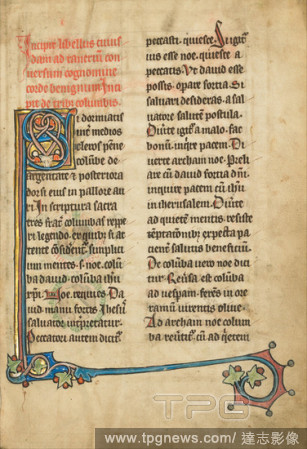 Incipit libellus cuius
dam ad ranerum con
uersum cognomine
corde benignum Inci
pit de tribus columbis.
Si dormiatis
inter medios
cleros penne
columbe de
argentate & posteriora
dorsi eius in pallore auri
In scriptura sacra
tres columbas
legendo
mentes s. noe. colum
ba dauid. columba ihu
xpi. Noe. requies Da
uid manu fortis Ihesus
saluator interpretatur
Peccatori autem dicitur
peccasti. quiesce. Si igitur
uis esse noe. quiesce a
peccatis. Vt dauid esse
possis. opare fortia Si
saluari desideras. a sal
uatore salutem postula.
Diuerte igitur a malo. fac
bonum. inquire pacem. Di
uerte ad archam noe. Preli
are cum dauid fortia
inquire pacem cum ihu
in iherusalem. Diuerte
ad quietem mentis. resiste
temptationibus. expecta pa
cienter salutis beneficium.
De columba uero noe dici
tur. Reuersa est columba
ad uesperam. ferens in ore
ramum uirentis oliue.
Ad archam noe colum
ba reuertitur. cum ad
TPG
www.tpgnews.com/ 達志影像